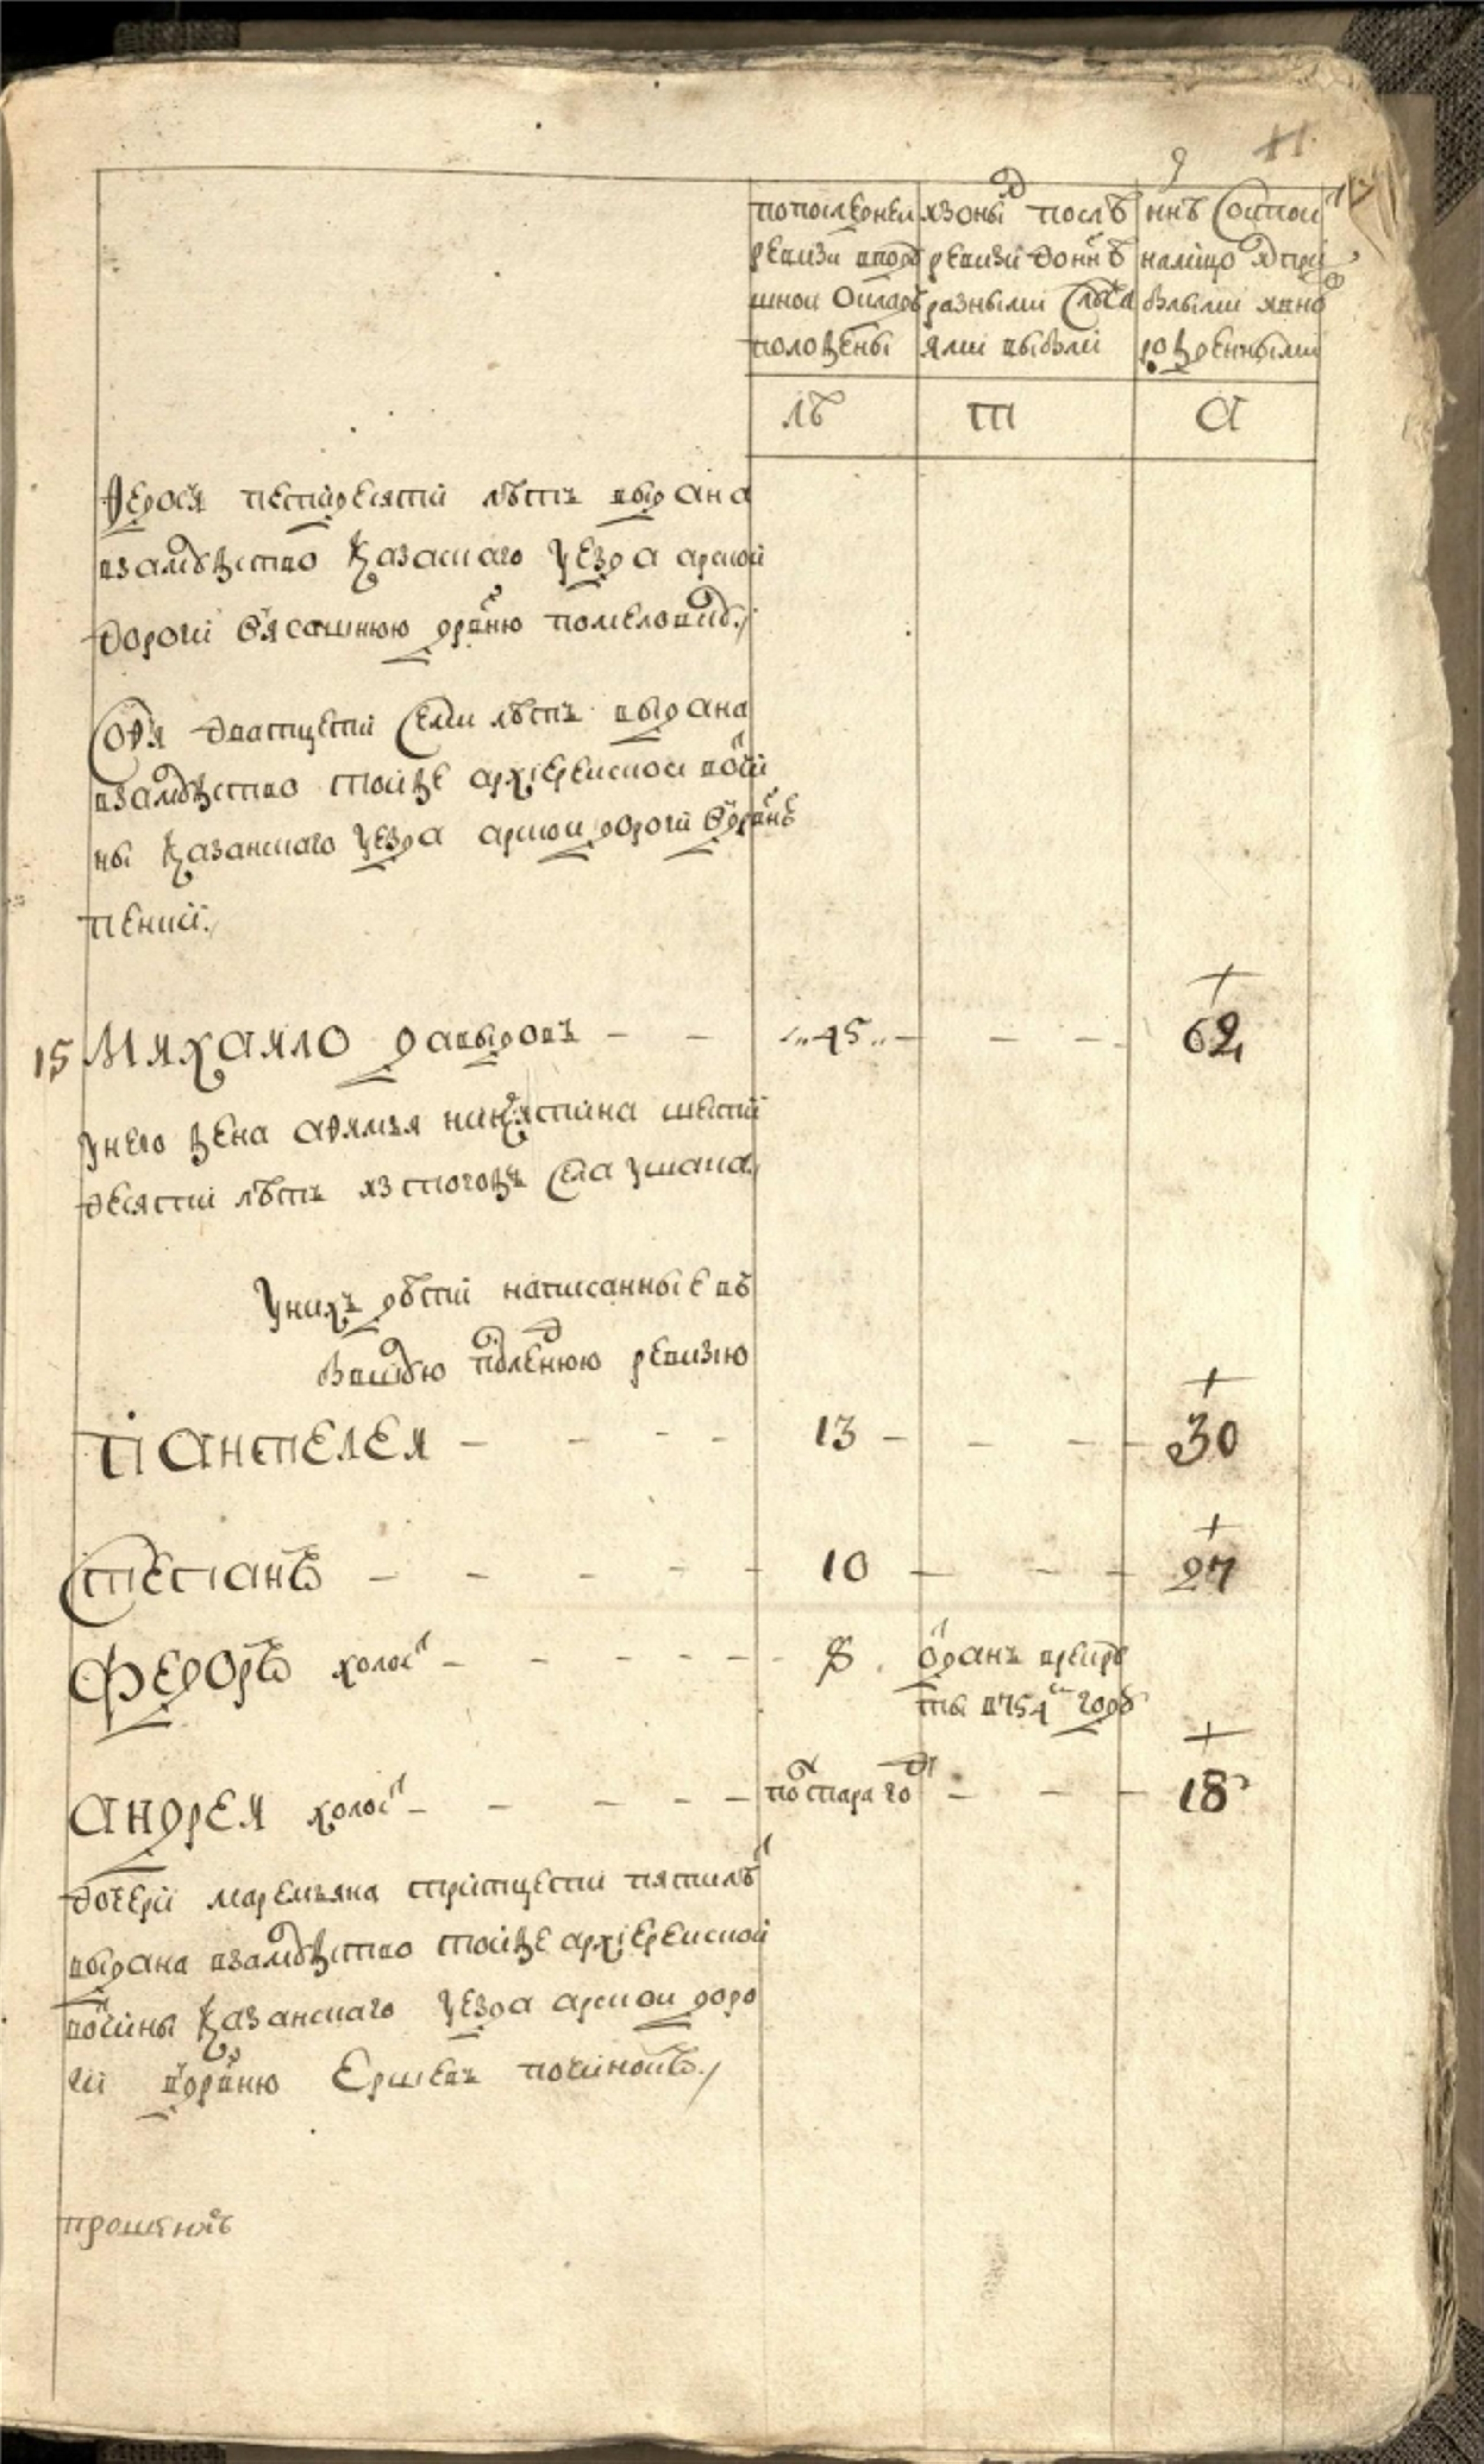 11
по последней ревизи в подушной оклад положены
из оных после ревизи до ныне разными случаями выбыли
ныне состоит налицо с прибылыми и вновь рожденными
лѣ
т
а
Федося пети десяти лѣтъ выдана
взамужство Казанскаго уезда арской
дороги в ясашнюю дрвню
Софя дватцети семи лѣтъ выдана
взамужство тоиже архиерейской вотчи
ны Казанскаго уезда арской дороги в дрвне
15 Михайло давыдовъ - - 45 - - - 62
у него жена афимья никитина шести
десяти лѣтъ из тогожъ села
у нихъ дѣти написанные въ
бывшую последнюю ревизию
Пантелей - - - - 13 - - - 30
Степанъ - - - - 10 - - - 27
Федоръ холост - - - - - 8 отданъ врекру
ты в 754м году
Андрей холост - - - - - после того - - - 18
дочери маремьяна тритцети пяти лѣт
выдана взамужство тоиже архиерейской
вотчины Казанскаго уезда арской доро
ги в дрвню Ершевъ починокъ